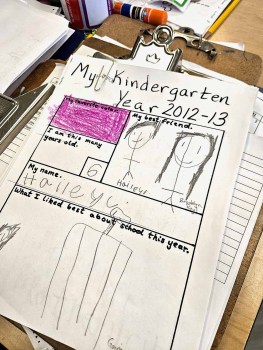 My Kindergarten
Year 2012-13
My favorite color.
My best friend.
I am this many
years old.
6
Hailey
My name.
Hailey
What I liked best about school this year.